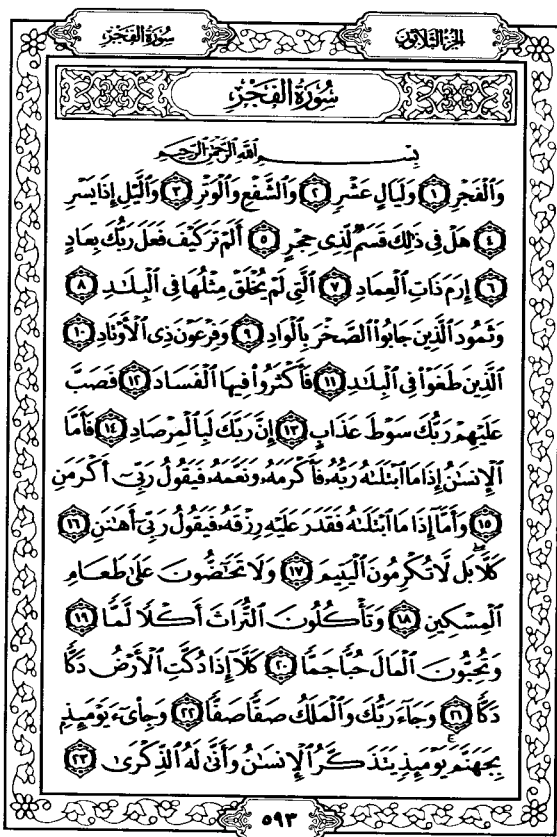 الجزء الثلاثون
سورة الفجر
سُورَةُ الْفَجْرِ
بِسْمِ اللَّهِ الرَّحْمَٰنِ الرَّحِيمِ
وَالْفَجْرِ ١ وَلَيَالٍ عَشْرٍ ٢ وَالشَّفْعِ وَالْوَتْرِ ٣ وَالَّيْلِ إِذَا يَسْرِ
٤ هَلْ فِي ذَٰلِكَ قَسَمٌ لِّذِي حِجْرٍ ٥ أَلَمْ تَرَ كَيْفَ فَعَلَ رَبُّكَ بِعَادٍ
٦ إِرَمَ ذَاتِ الْعِمَادِ ٧ الَّتِي لَمْ يُخْلَقْ مِثْلُهَا فِي الْبِلَٰدِ ٨
وَثَمُودَ الَّذِينَ جَابُوا الصَّخْرَ بِالْوَادِ ٩ وَفِرْعَوْنَ ذِي الْأَوْتَادِ ١٠
الَّذِينَ طَغَوْا فِي الْبِلَٰدِ ١١ فَأَكْثَرُوا فِيهَا الْفَسَادَ ١٢ فَصَبَّ
عَلَيْهِمْ رَبُّكَ سَوْطَ عَذَابٍ ١٣ إِنَّ رَبَّكَ لَبِالْمِرْصَادِ ١٤ فَأَمَّا
الْإِنسَٰنُ إِذَا مَا ابْتَلَىٰهُ رَبُّهُ فَأَكْرَمَهُ وَنَعَّمَهُ فَيَقُولُ رَبِّي أَكْرَمَنِ
١٥ وَأَمَّا إِذَا مَا ابْتَلَىٰهُ فَقَدَرَ عَلَيْهِ رِزْقَهُ فَيَقُولُ رَبِّي أَهَٰنَنِ ١٦
كَلَّا بَل لَّا تُكْرِمُونَ الْيَتِيمَ ١٧ وَلَا تَحَٰضُّونَ عَلَىٰ طَعَامِ
الْمِسْكِينِ ١٨ وَتَأْكُلُونَ التُّرَاثَ أَكْلًا لَّمًّا ١٩
وَتُحِبُّونَ الْمَالَ حُبًّا جَمًّا ٢٠ كَلَّا إِذَا دُكَّتِ الْأَرْضُ دَكًّا
دَكًّا ٢١ وَجَاءَ رَبُّكَ وَالْمَلَكُ صَفًّا صَفًّا ٢٢ وَجِا۟ىءَ يَوْمَئِذٍ
بِجَهَنَّمَ يَوْمَئِذٍ يَتَذَكَّرُ الْإِنسَٰنُ وَأَنَّىٰ لَهُ الذِّكْرَىٰ ٢٣
٥٩٣